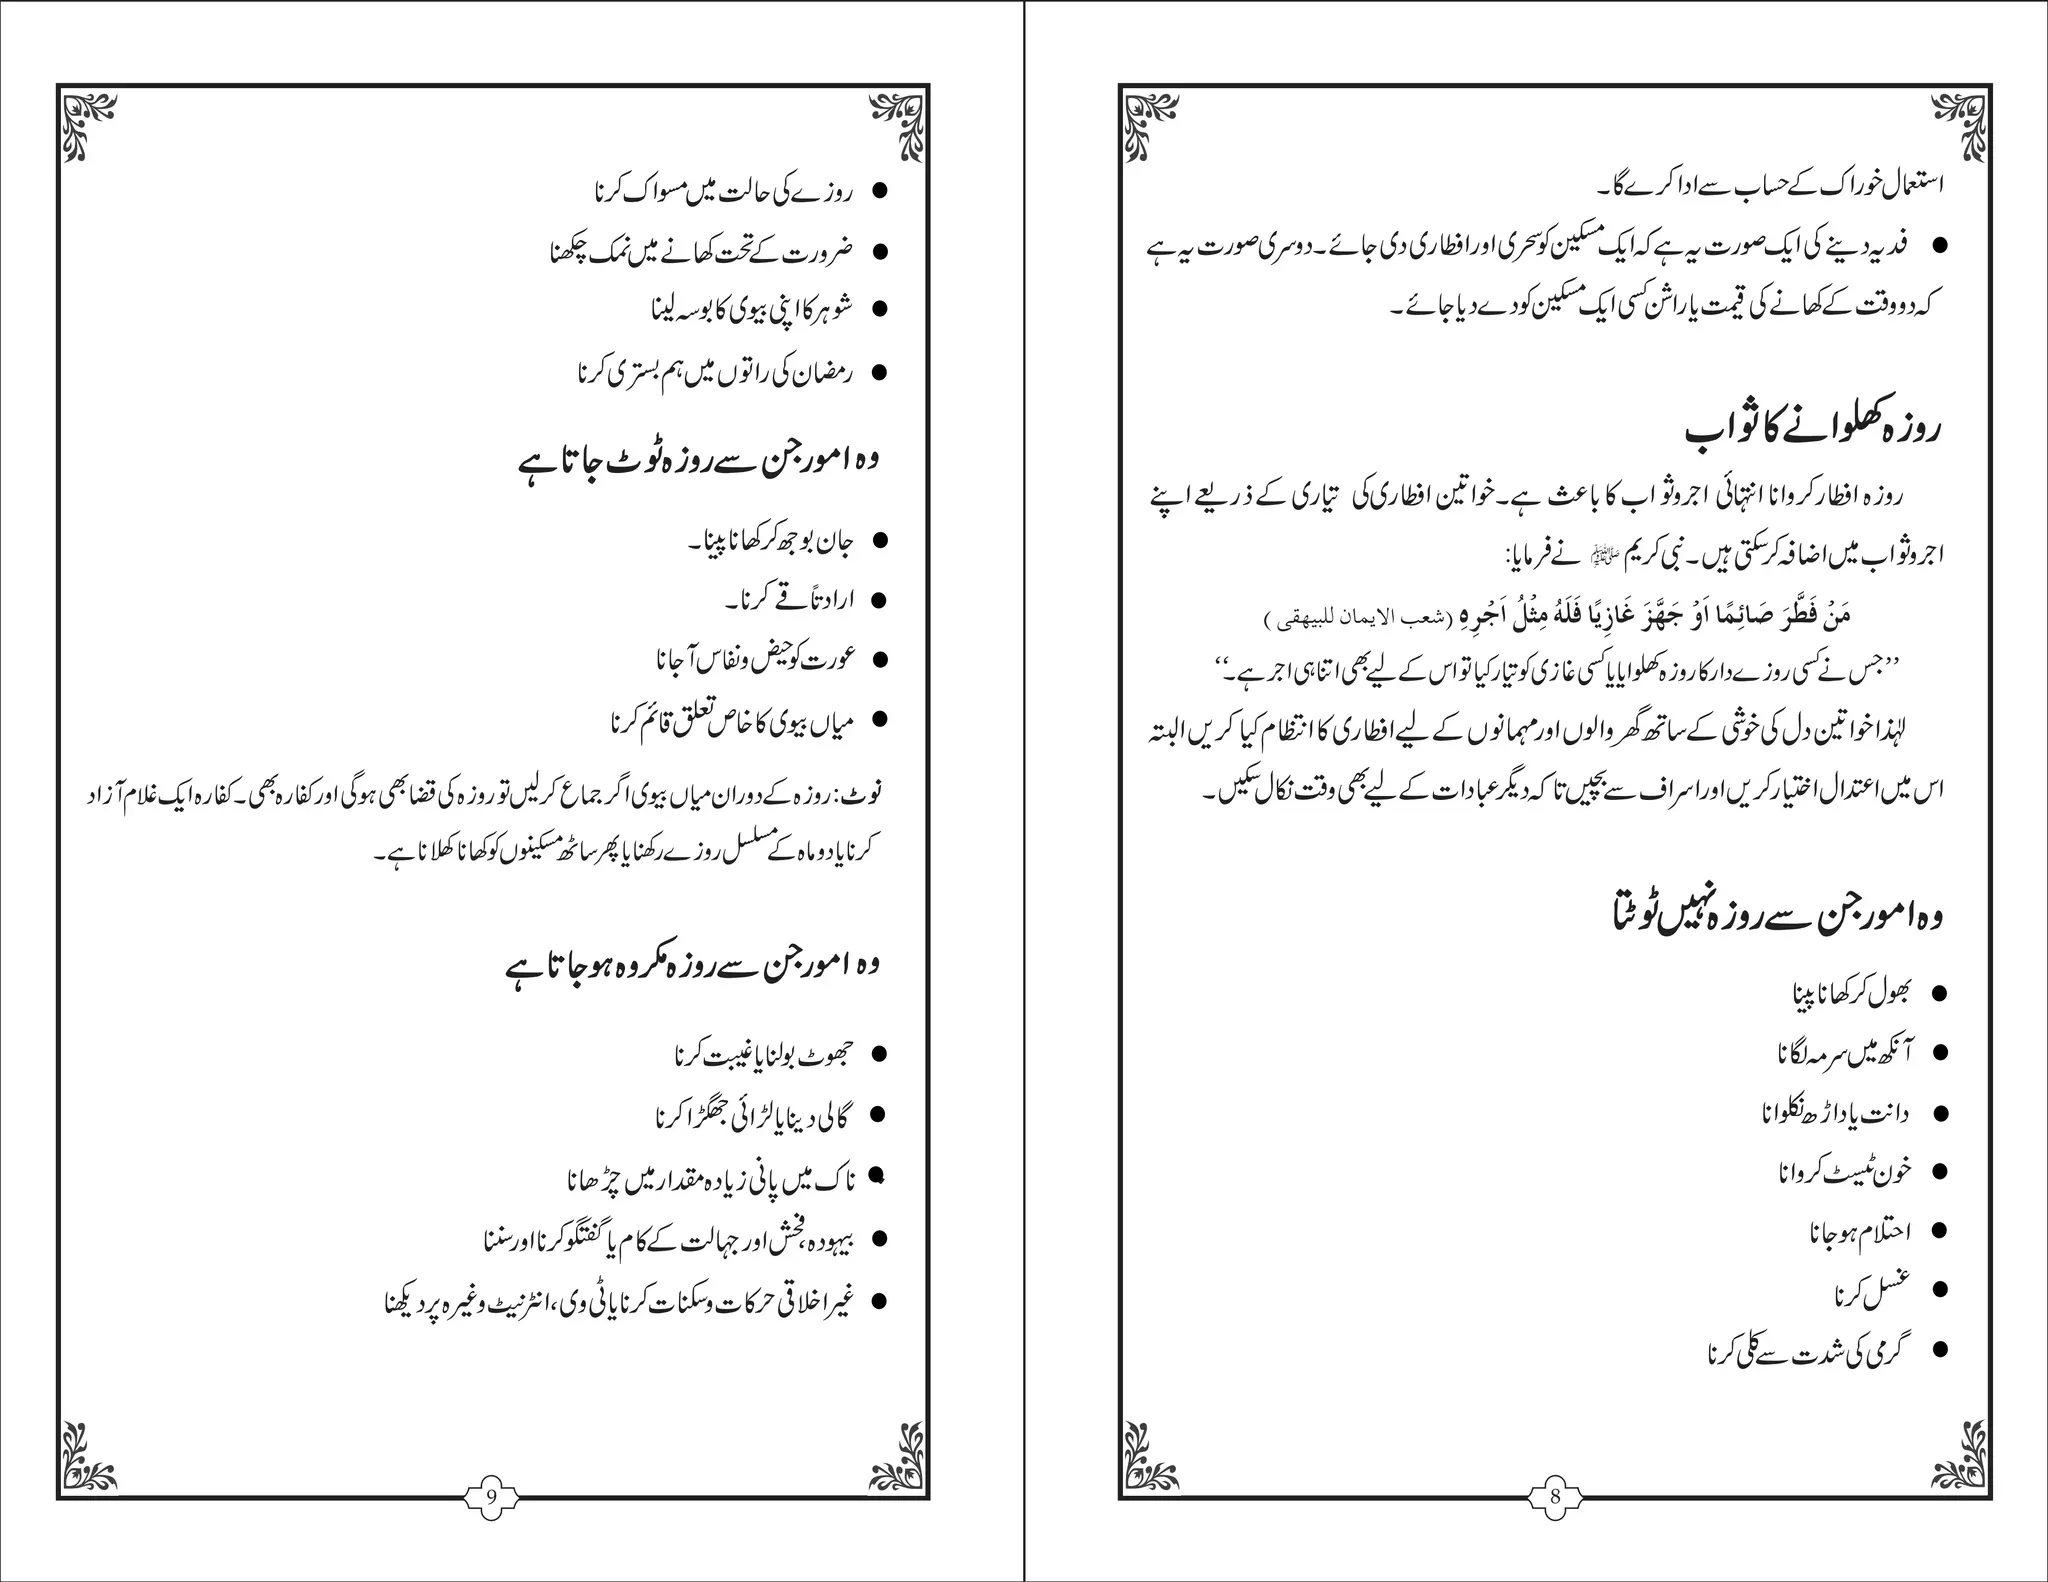 استعمال خوراک کے حساب سے ادا کرے گا۔
● فدیہ دینے کی ایک صورت یہ ہے کہ ایک مسکین کو سحری اور افطاری دی جائے۔ دوسری صورت یہ ہے
کہ دو وقت کے کھانے کی قیمت یا راشن کسی ایک مسکین کو دے دیا جائے۔
روزہ کھلوانے کا ثواب
روزہ افطار کروانا انتہائی اجروثواب کا باعث ہے۔ خواتین افطاری کی تیاری کے ذریعے اپنے
اجروثواب میں اضافہ کرسکتی ہیں۔ نبی کریم ﷺ نے فرمایا:
مَنْ فَطَّرَ صَائِمًا اَوْ جَهَّزَ غَازِيًا فَلَهُ مِثْلُ اَجْرِهِ (شعب الایمان للبیہقی)
’’جس نے کسی روزے دار کا روزہ کھلوایا یا کسی غازی کو تیار کیا تو اس کے لیے بھی اتنا ہی اجر ہے۔‘‘
لہٰذا خواتین دل کی خوشی کے ساتھ گھر والوں اور مہمانوں کے لیے افطاری کا انتظام کیا کریں البتہ
اس میں اعتدال اختیار کریں اور اسراف سے بچیں تاکہ دیگر عبادات کے لیے بھی وقت نکال سکیں۔
وہ امور جن سے روزہ نہیں ٹوٹتا
● بھول کر کھانا پینا
● آنکھ میں سرمہ لگانا
● دانت یا داڑھ نکلوانا
● خون ٹیسٹ کروانا
● احتلام ہو جانا
● غسل کرنا
● گرمی کی شدت سے کلی کرنا
8
● روزے کی حالت میں مسواک کرنا
● ضرورت کے تحت کھانے میں نمک چکھنا
● شوہر کا اپنی بیوی کا بوسہ لینا
● رمضان کی راتوں میں ہم بستری کرنا
وہ امور جن سے روزہ ٹوٹ جاتا ہے
● جان بوجھ کر کھانا پینا۔
● ارادتاً قے کرنا۔
● عورت کو حیض و نفاس آجانا
● میاں بیوی کا خاص تعلق قائم کرنا
نوٹ: روزہ کے دوران میاں بیوی اگر جماع کرلیں تو روزہ کی قضا بھی ہوگی اور کفارہ بھی۔ کفارہ ایک غلام آزاد
کرنا یا دو ماہ کے مسلسل روزے رکھنا یا پھر ساٹھ مسکینوں کو کھانا کھلانا ہے۔
وہ امور جن سے روزہ مکروہ ہو جاتا ہے
● جھوٹ بولنا یا غیبت کرنا
● گالی دینا یا لڑائی جھگڑا کرنا
● ناک میں پانی زیادہ مقدار میں چڑھانا
● بیہودہ، فحش اور جہالت کے کام یا گفتگو کرنا اور سننا
● غیر اخلاقی حرکات و سکنات کرنا یا ٹی وی، انٹرنیٹ وغیرہ پر دیکھنا
9